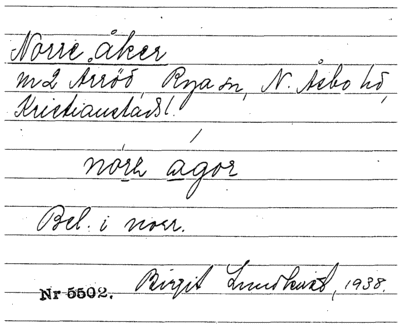 Norre åker
m2 Arröd, Rya sn, N. Åsbo hd,
Kristianstads l.
nörr agor
Bel. i norr.
Nr 5502. Birgit Lundkvist, 1938.